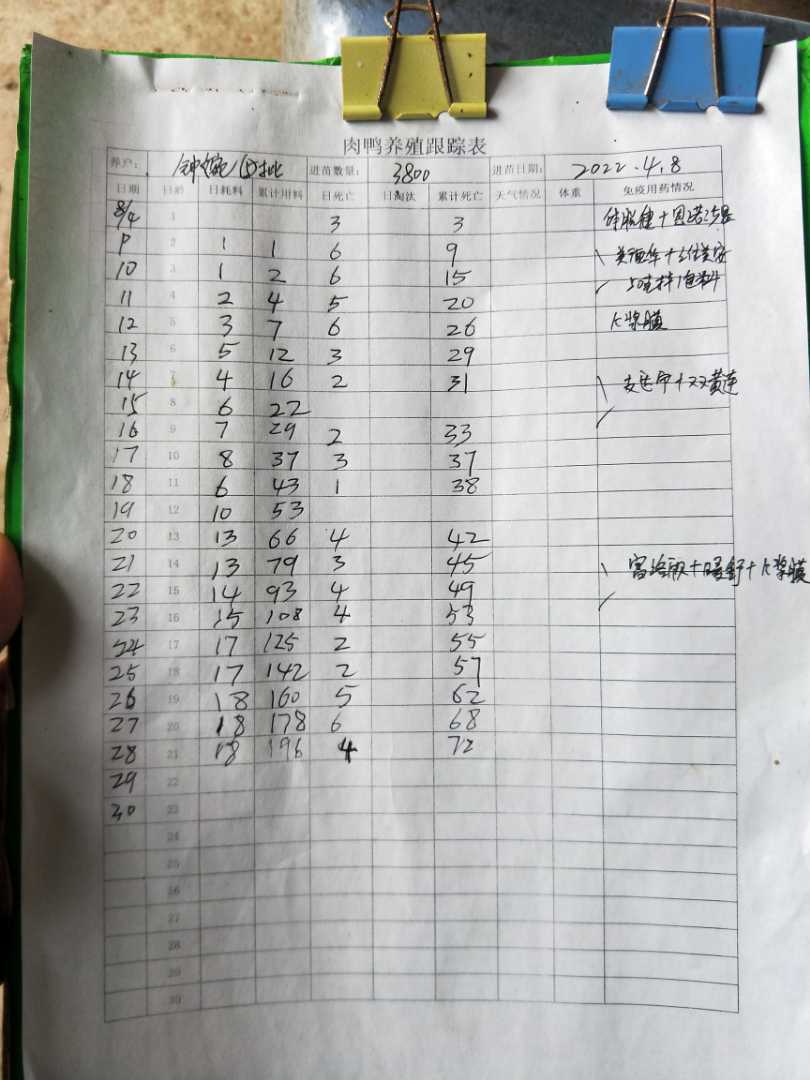 肉鸭养殖跟踪表
养户： 钟 批 进苗数量： 3800 进苗日期： 2022.4.8
日期 日龄 日耗料 累计用料 日死亡 日淘汰 累计死亡 天气情况 体重 免疫用药情况
8/4 1 3 3
9 2 1 1 6 9
10 3 1 2 6 15
11 4 2 4 5 20
12 5 3 7 6 26 浆膜
13 6 5 12 3 29
14 7 4 16 2 31 +双黄连
15 8 6 22
16 9 7 29 2 33
17 10 8 37 3 37
18 11 6 43 1 38
19 12 10 53
20 13 13 66 4 42
21 14 13 79 3 45 浆膜
22 15 14 93 4 49
23 16 15 108 4 53
24 17 17 125 2 55
25 18 17 142 2 57
26 19 18 160 5 62
27 20 18 178 6 68
28 21 18 196 4 72
29 22
30 23
24
25
26
27
28
29
30